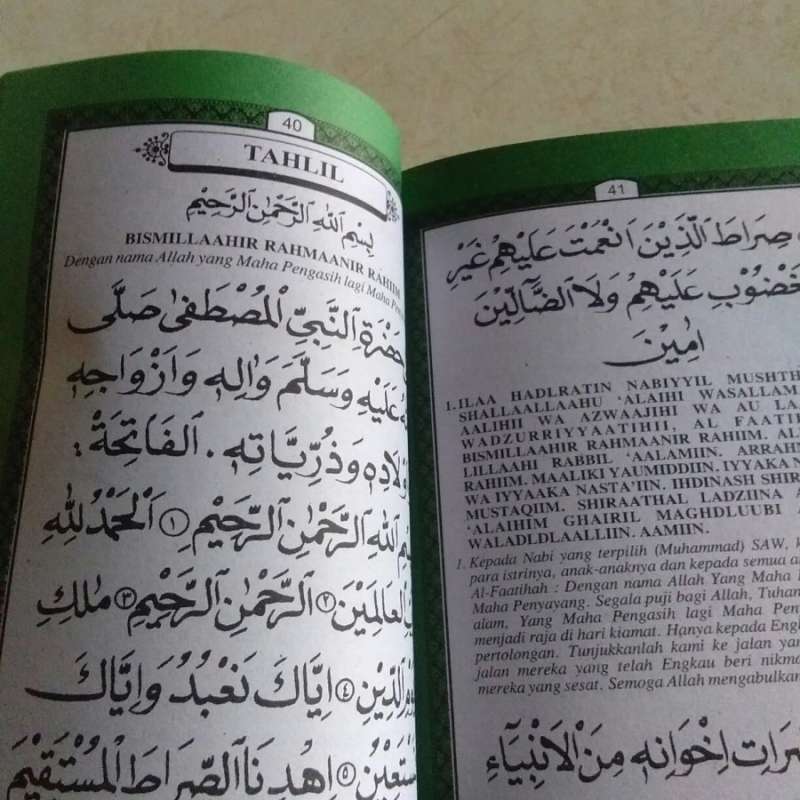 40
TAHLIL
بِسْمِ اللهِ الرَّحْمٰنِ الرَّحِيْمِ
BISMILLAAHIR RAHMAANIR RAHIIM
Dengan nama Allah yang Maha Pengasih lagi Maha
حَضْرَةِ النَّبِيِّ الْمُصْطَفٰى صَلَّى
عَلَيْهِ وَسَلَّمَ وَاٰلِهٖ وَاَزْوَاجِهٖ
وَذُرِّيَّاتِهٖ . اَلْفَاتِحَةْ :
اللهِ الرَّحْمٰنِ الرَّحِيْمِ ۝١ اَلْحَمْدُ لِلّٰهِ
الْعَالَمِيْنَ ۝٢ اَلرَّحْمٰنِ الرَّحِيْمِ ۝٣ مٰلِكِ
الدِّيْنِ ۝٤ اِيَّاكَ نَعْبُدُ وَاِيَّاكَ
۝٥ اِهْدِنَا الصِّرَاطَ الْمُسْتَقِيْمَ
41
صِرَاطَ الَّذِيْنَ اَنْعَمْتَ عَلَيْهِمْ غَيْرِ
عَلَيْهِمْ وَلَا الضَّالِّيْنَ
اٰمِيْنَ
1. ILAA HADLRATIN NABIYYIL
SHALLAALLAAHU 'ALAIHI WASALLAM
AALIHII WA AZWAAJIHI WA AU
WADZURRIYYAATIHII, AL
BISMILLAAHIR RAHMAANIR RAHIIM.
LILLAAHI RABBIL 'AALAMIIN.
RAHIIM. MAALIKI YAUMIDDIIN. IYYAKA
WA IYYAAKA NASTA'IIN. IHDINASH
MUSTAQIIM. SHIRAATHAL LADZIINA
'ALAIHIM GHAIRIL MAGHDLUUBI
WALADLDLAALLIIN. AAMIIN.
1. Kepada Nabi yang terpilih (Muhammad) SAW,
para istrinya, anak-anaknya dan kepada semua
Al-Faatihah : Dengan nama Allah Yang Maha
Maha Penyayang. Segala puji bagi Allah,
alam, Yang Maha Pengasih lagi Maha
menjadi raja di hari kiamat. Hanya kepada
pertolongan. Tunjukkanlah kami ke jalan
jalan mereka yang telah Engkau beri
mereka yang sesat. Semoga Allah
اِخْوَانِهٖ مِنَ الْاَنْبِيَاءِ